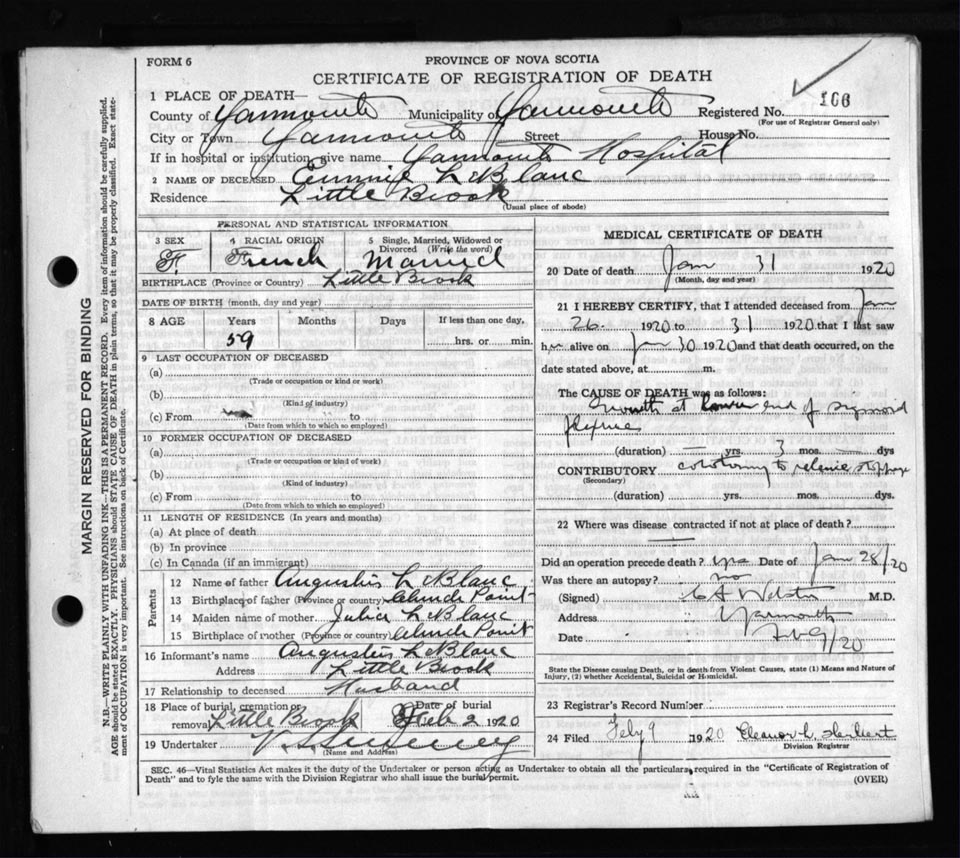 FORM 6
PROVINCE OF NOVA SCOTIA
CERTIFICATE OF REGISTRATION OF DEATH
1 PLACE OF DEATH—
County of Yarmouth Municipality of Yarmouth Registered No. 166
(For use of Registrar General only)
City or Town Yarmouth Street House No.
If in hospital or institution, give name Yarmouth Hospital
2 NAME OF DECEASED LeBlanc
Residence Little Brook
(Usual place of abode)
PERSONAL AND STATISTICAL INFORMATION
3 SEX F. 4 RACIAL ORIGIN French 5 Single, Married, Widowed or Divorced (Write the word) Married
BIRTHPLACE (Province or Country) Little Brook
DATE OF BIRTH (month, day and year)
8 AGE Years 59 Months Days If less than one day, hrs. or min.
9 LAST OCCUPATION OF DECEASED
(a)
(Trade or occupation or kind or work)
(b)
(Kind of industry)
(c) From to
(Date from which to which so employed)
10 FORMER OCCUPATION OF DECEASED
(a)
(Trade or occupation or kind of work)
(b)
(Kind of industry)
(c) From to
(Date from which to which so employed)
11 LENGTH OF RESIDENCE (In years and months)
(a) At place of death
(b) In province
(c) In Canada (if an immigrant)
Parents
12 Name of father Augustin LeBlanc
13 Birthplace of father (Province or country) Point
14 Maiden name of mother Julie LeBlanc
15 Birthplace of mother (Province or country) Point
16 Informant's name Augustin LeBlanc
Address Little Brook
17 Relationship to deceased Husband
18 Place of burial, cremation or removal Little Brook Date of burial Feb 2 1920
19 Undertaker V. S. Sweeney
(Name and Address)
MEDICAL CERTIFICATE OF DEATH
20 Date of death Jan 31 1920
(Month, day and year)
21 I HEREBY CERTIFY, that I attended deceased from Jan
26 1920 to 31 1920 that I last saw
h alive on Jan 30 1920 and that death occurred, on the
date stated above, at m.
The CAUSE OF DEATH was as follows:
Growth at lower end of sigmoid
flexure
(duration) — yrs. 3 mos. — dys.
CONTRIBUTORY colotomy to relieve stoppage
(Secondary)
(duration) yrs. mos. dys.
22 Where was disease contracted if not at place of death?
Did an operation precede death? yes Date of Jan 28/20
Was there an autopsy? no
(Signed) M.D.
Address Yarmouth
Date Feb 9/20
State the Disease causing Death, or in death from Violent Causes, state (1) Means and Nature of
Injury, (2) whether Accidental, Suicidal or Homicidal.
23 Registrar's Record Number
24 Filed Feby 9 1920 Eleanor L. Herbert
Division Registrar
SEC. 46—Vital Statistics Act makes it the duty of the Undertaker or person acting as Undertaker to obtain all the particulars required in the "Certificate of Registration of
Death" and to fyle the same with the Division Registrar who shall issue the burial permit.
(OVER)
MARGIN RESERVED FOR BINDING
N.B.—WRITE PLAINLY WITH UNFADING INK—THIS IS A PERMANENT RECORD. Every item of information should be carefully supplied.
AGE should be stated EXACTLY. PHYSICIANS should STATE CAUSE OF DEATH in plain terms, so that it may be properly classified. Exact state-
ment of OCCUPATION is very important. See instructions on back of Certificate.